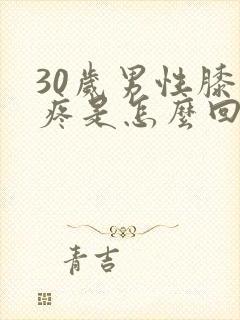 30歲男性膝
疼是怎麼回
青吉